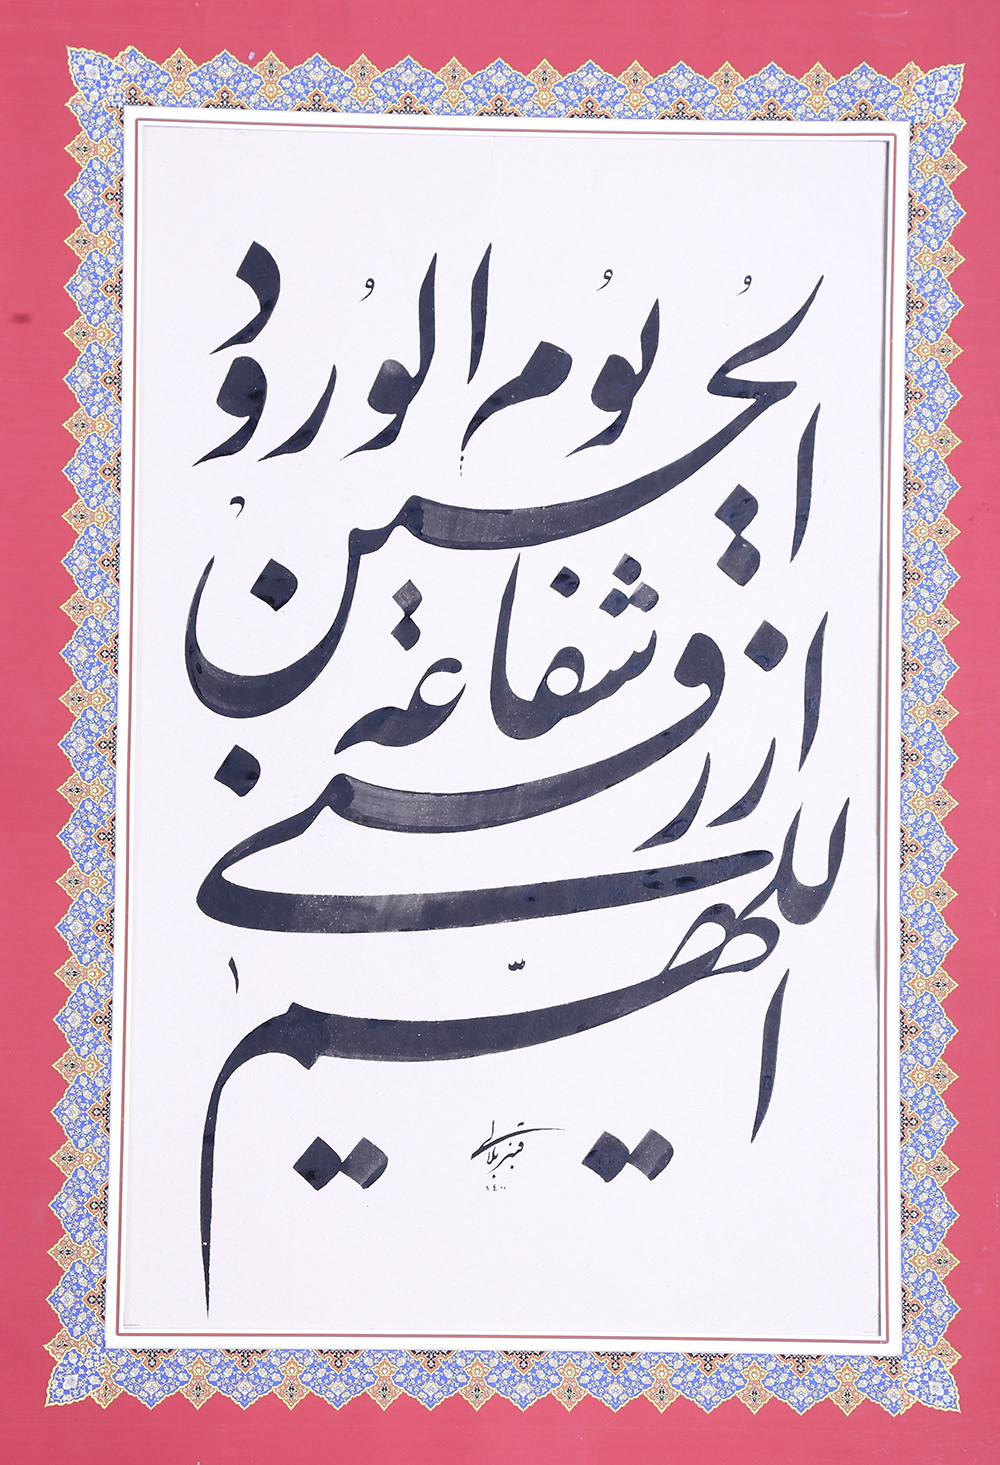 اللهم
ارزقنی شفاعة
الحُسین یُوم الوُرود
قنبر بلالی
۱۴۰۰